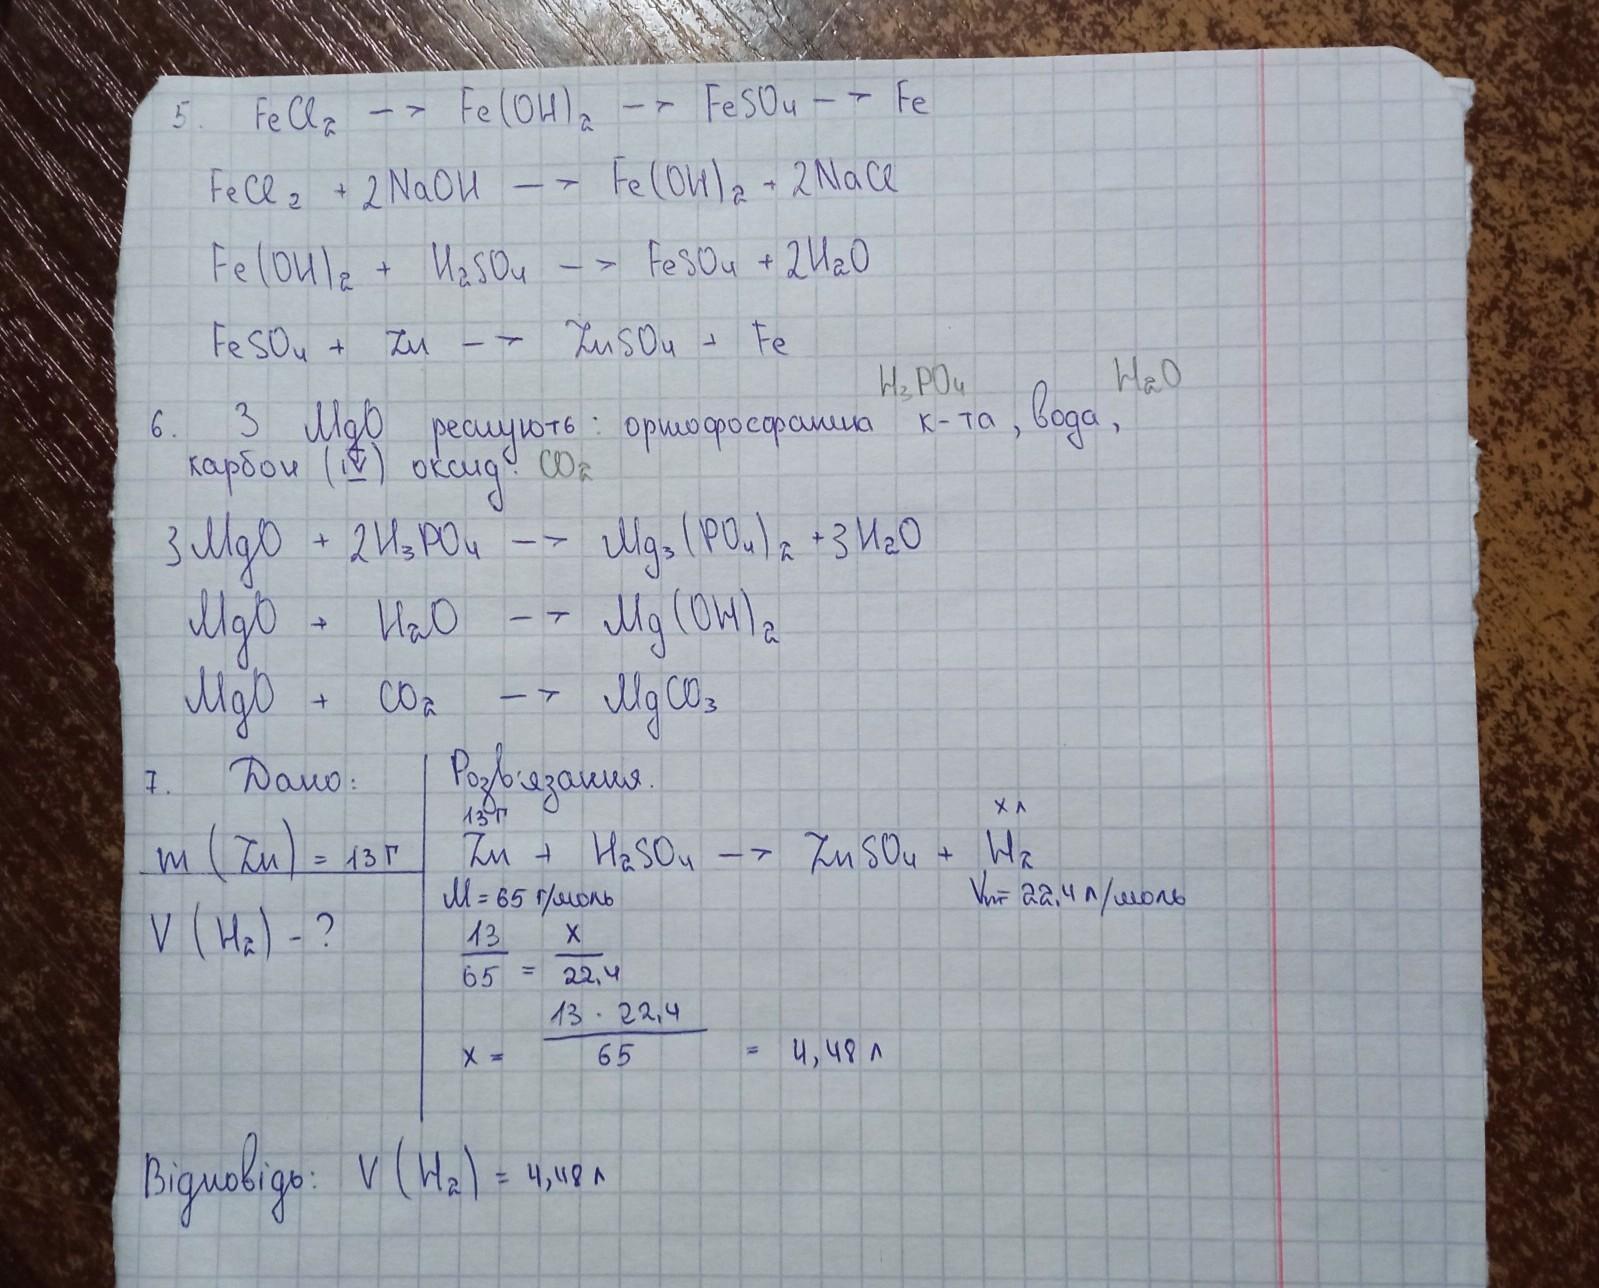 5. FeCl₂ —> Fe(OH)₂ —> FeSO₄ —> Fe
FeCl₂ + 2NaOH —> Fe(OH)₂ + 2NaCl
Fe(OH)₂ + H₂SO₄ —> FeSO₄ + 2H₂O
FeSO₄ + Zn —> ZnSO₄ + Fe
H₃PO₄ H₂O
6. З MgO реагують: ортофосфатна к-та, вода,
карбон (IV) оксид. CO₂
3MgO + 2H₃PO₄ —> Mg₃(PO₄)₂ + 3H₂O
MgO + H₂O —> Mg(OH)₂
MgO + CO₂ —> MgCO₃
7. Дано: Розв'язання.
13 г x л
m(Zn) = 13 г Zn + H₂SO₄ —> ZnSO₄ + H₂
M = 65 г/моль Vm = 22,4 л/моль
V(H₂) - ? 13/65 = x/22,4
x = 13 · 22,4/65 = 4,48 л
Відповідь: V(H₂) = 4,48 л